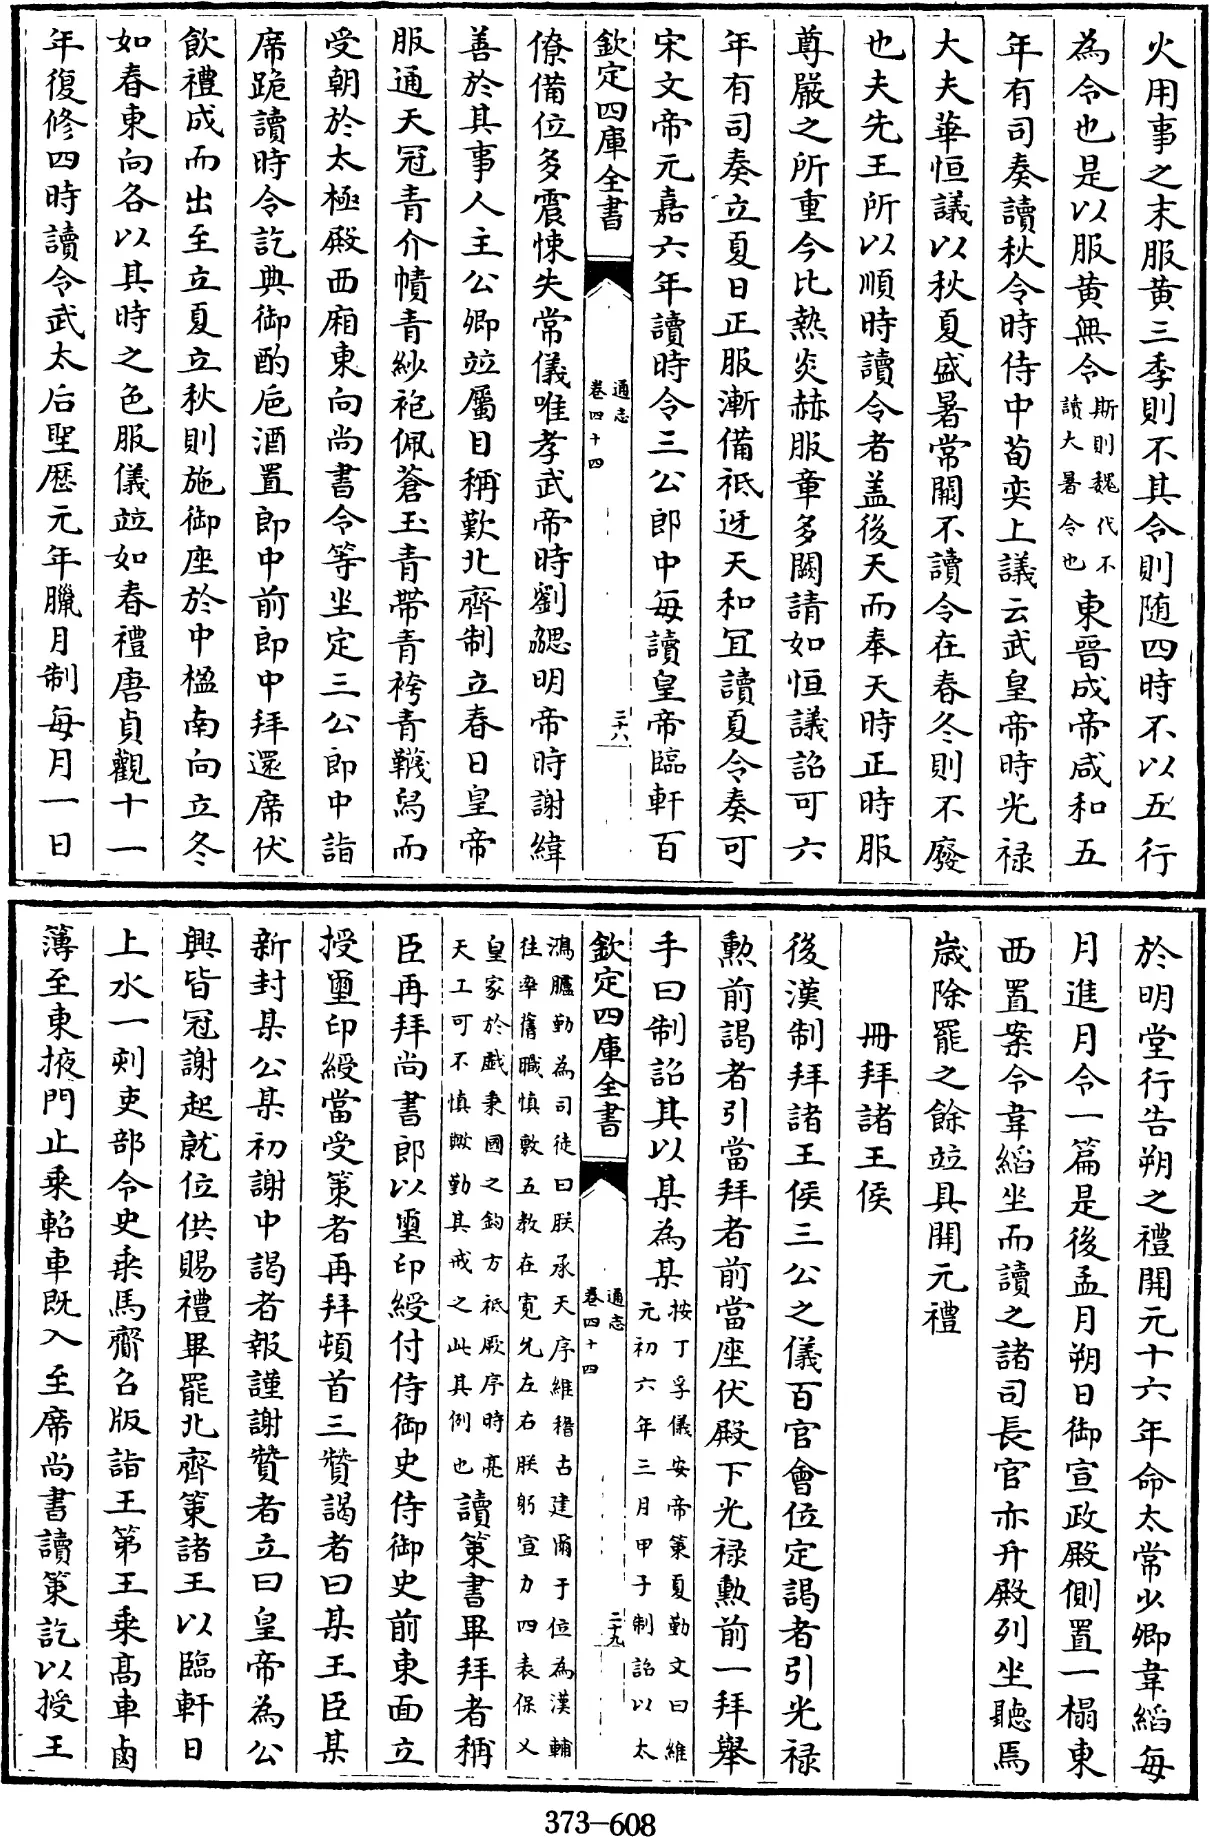 火用事之末服黃三季則不其令則随四時不以五行
為令也是以服黃無令斯則魏代不讀大暑令也東晉成帝咸和五
年有司奏讀秋令時侍中荀奕上議云武皇帝時光禄
大夫華恒議以秋夏盛暑常闕不讀令在春冬則不廢
也夫先王所以順時讀令者盖後天而奉天時正時服
尊嚴之所重今比熱炎赫服章多闕請如恒議詔可六
年有司奏立夏日正服漸備祗迓天和宜讀夏令奏可
宋文帝元嘉六年讀時令三公郎中每讀皇帝臨軒百
欽定四庫全書
通志
卷四十四
二十八
僚備位多震悚失常儀唯孝武帝時劉勰明帝時謝緯
善於其事人主公卿竝屬目稱歎北齊制立春日皇帝
服通天冠青介幘青紗袍佩蒼玉青帶青袴青韈舄而
受朝於太極殿西廂東向尚書令等坐定三公郎中詣
席跪讀時令訖典御酌巵酒置郎中前郎中拜還席伏
飲禮成而出至立夏立秋則施御座於中楹南向立冬
如春東向各以其時之色服儀竝如春禮唐貞觀十一
年復修四時讀令武太后聖歷元年臘月制每月一日
於明堂行告朔之禮開元十六年命太常少卿韋縚每
月進月令一篇是後孟月朔日御宣政殿側置一榻東
西置案令韋縚坐而讀之諸司長官亦升殿列坐聽焉
歲除罷之餘竝具開元禮
冊拜諸王侯
後漢制拜諸王侯三公之儀百官會位定謁者引光禄
勲前謁者引當拜者前當座伏殿下光禄勲前一拜舉
手曰制詔其以某為某按丁孚儀安帝策夏勤文曰維元初六年三月甲子制詔以太
欽定四庫全書
通志
卷四十四
二十九
鴻臚勤為司徒曰朕承天序維稽古建爾于位為漢輔往率舊職慎敷五教在寛允左右朕躬宣力四表保乂
皇家於戲秉國之鈞方祗厥序時亮天工可不慎歟勤其戒之此其例也讀策書畢拜者稱
臣再拜尚書郎以璽印綬付侍御史侍御史前東面立
授璽印綬當受策者再拜頓首三贊謁者曰某王臣某
新封某公某初謝中謁者報謹謝贊者立曰皇帝為公
興皆冠謝起就位供賜禮畢罷北齊策諸王以臨軒日
上水一刻吏部令史乘馬齎召版詣王第王乘高車鹵
簿至東掖門止乘軺車既入至席尚書讀策訖以授王
373-608